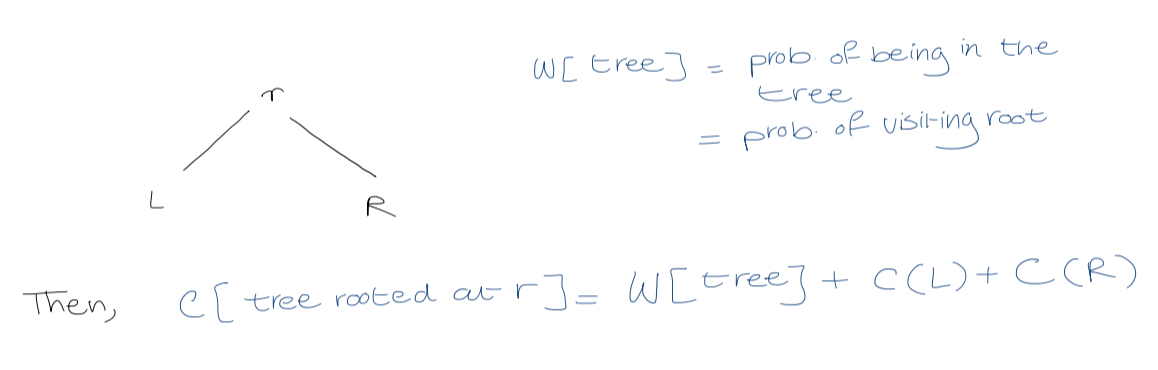 r
L
R
W[tree] = prob. of being in the
tree
= prob. of visiting root
Then, C[tree rooted at r] = W[tree] + C(L) + C(R)